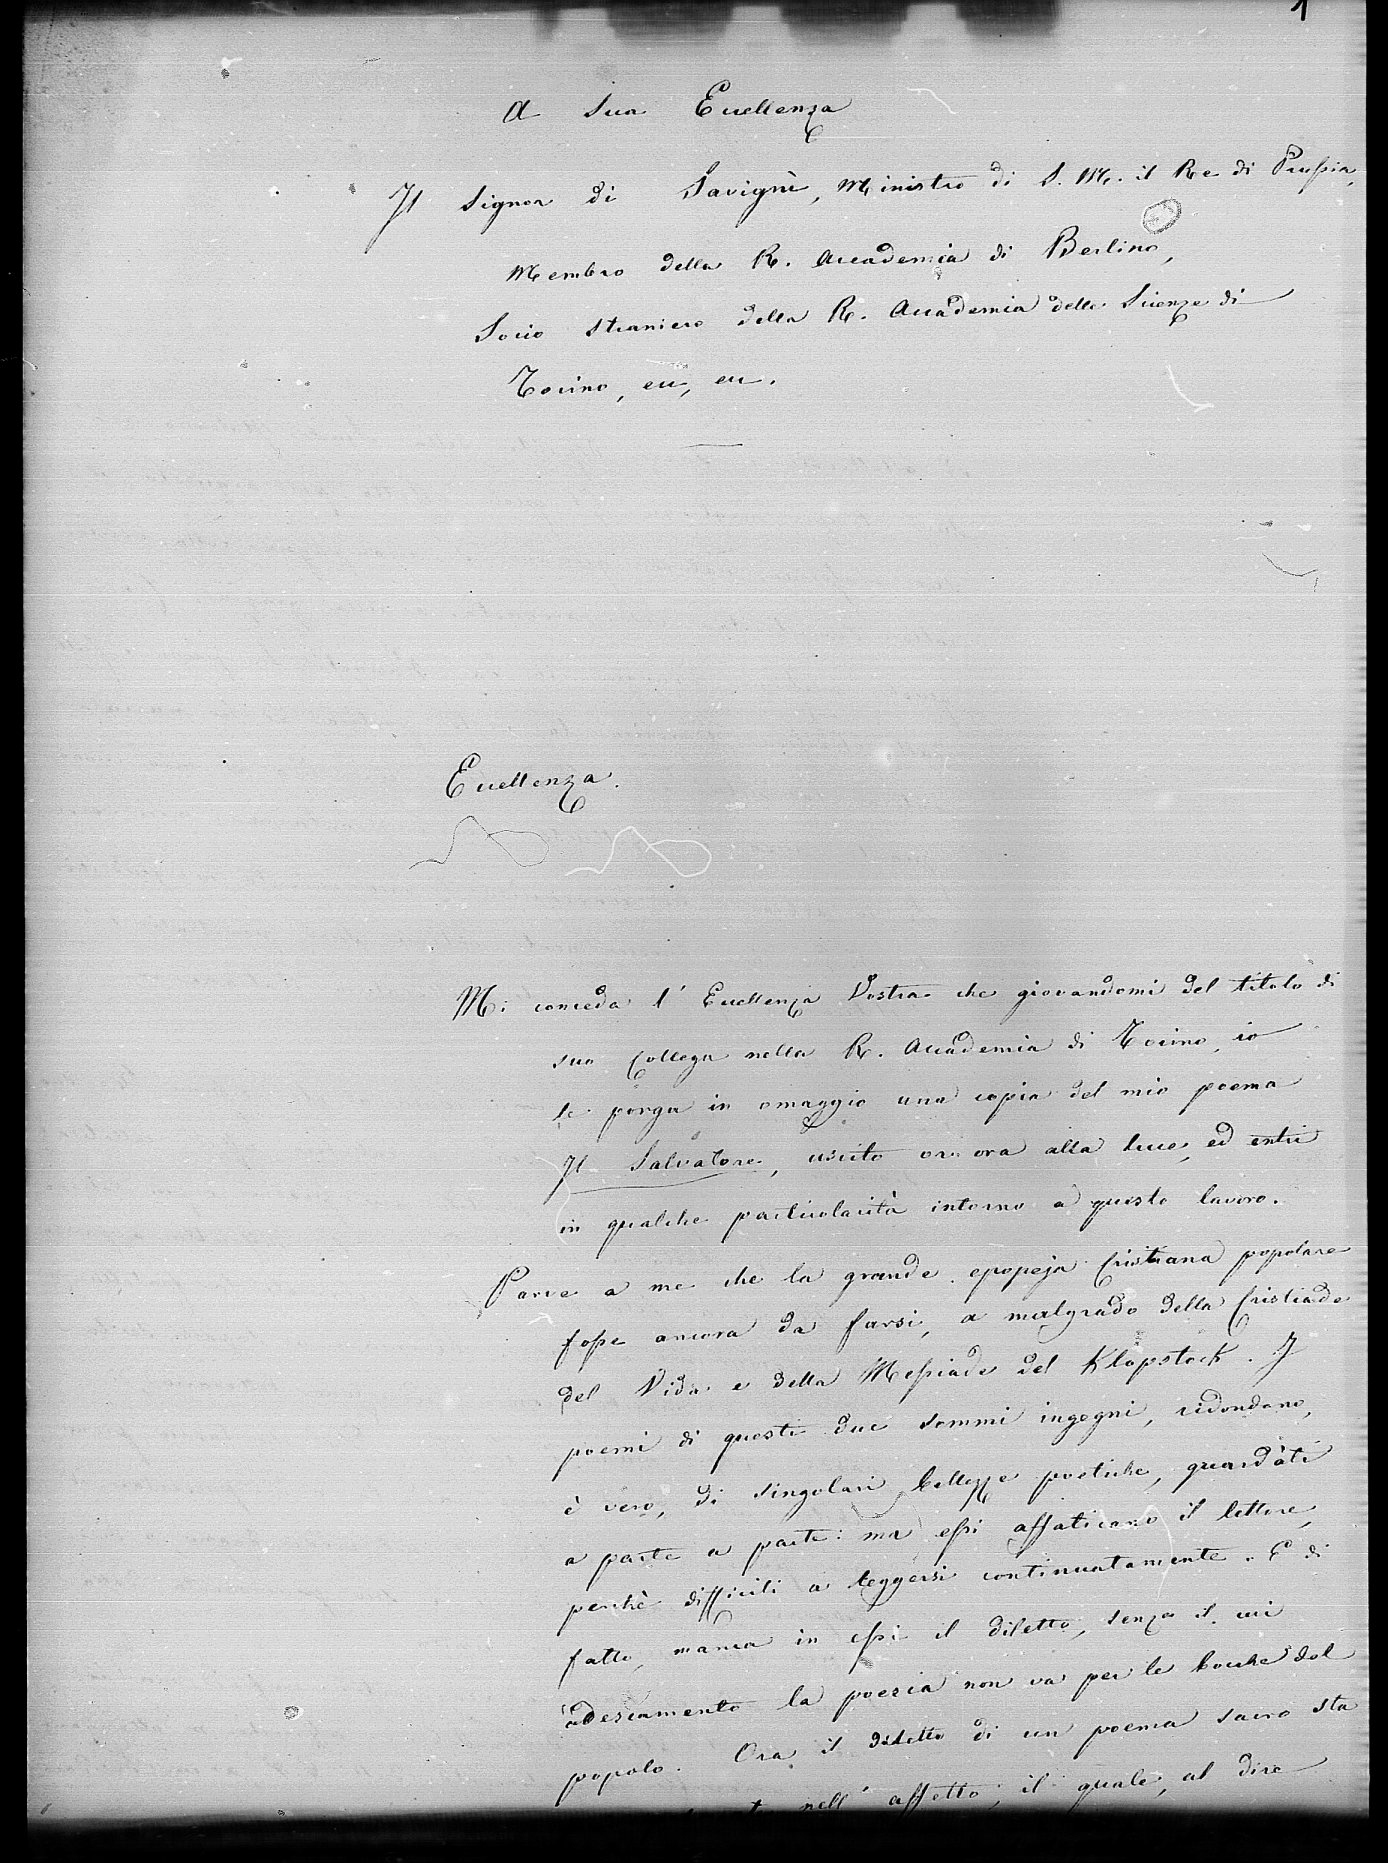 1
A Sua Eccellenza
Il Signor di Savignì, Ministro di S. M. il Re di Prussia,
Membro della R. Accademia di Berlino,
Socio straniero della R. Accademia delle Scienze di
Torino, ecc, ecc.
Eccellenza.
Mi conceda l'Eccellenza Vostra che giovandomi del titolo di
suo Collega nella R. Accademia di Torino, io
le porga in omaggio una copia del mio poema
Il Salvatore, uscito or ora alla luce, ed entri
in qualche particolarità intorno a questo lavoro.
Parve a me che la grande epopeja Cristiana popolare
fosse ancora da farsi, a malgrado della Cristiade
del Vida e della Messiade del Klopstock. I
poemi di questi due sommi ingegni, ridondano,
è vero, di singolari bellezze poetiche, guardati
a parte a parte: ma essi affaticano il lettore,
perchè difficili a leggersi continuatamente. E di
fatto, manca in essi il diletto, senza il cui
adescamento la poesia non va per le bocche del
popolo. Ora il diletto di un poema sacro sta
nell'affetto, il quale, al dire